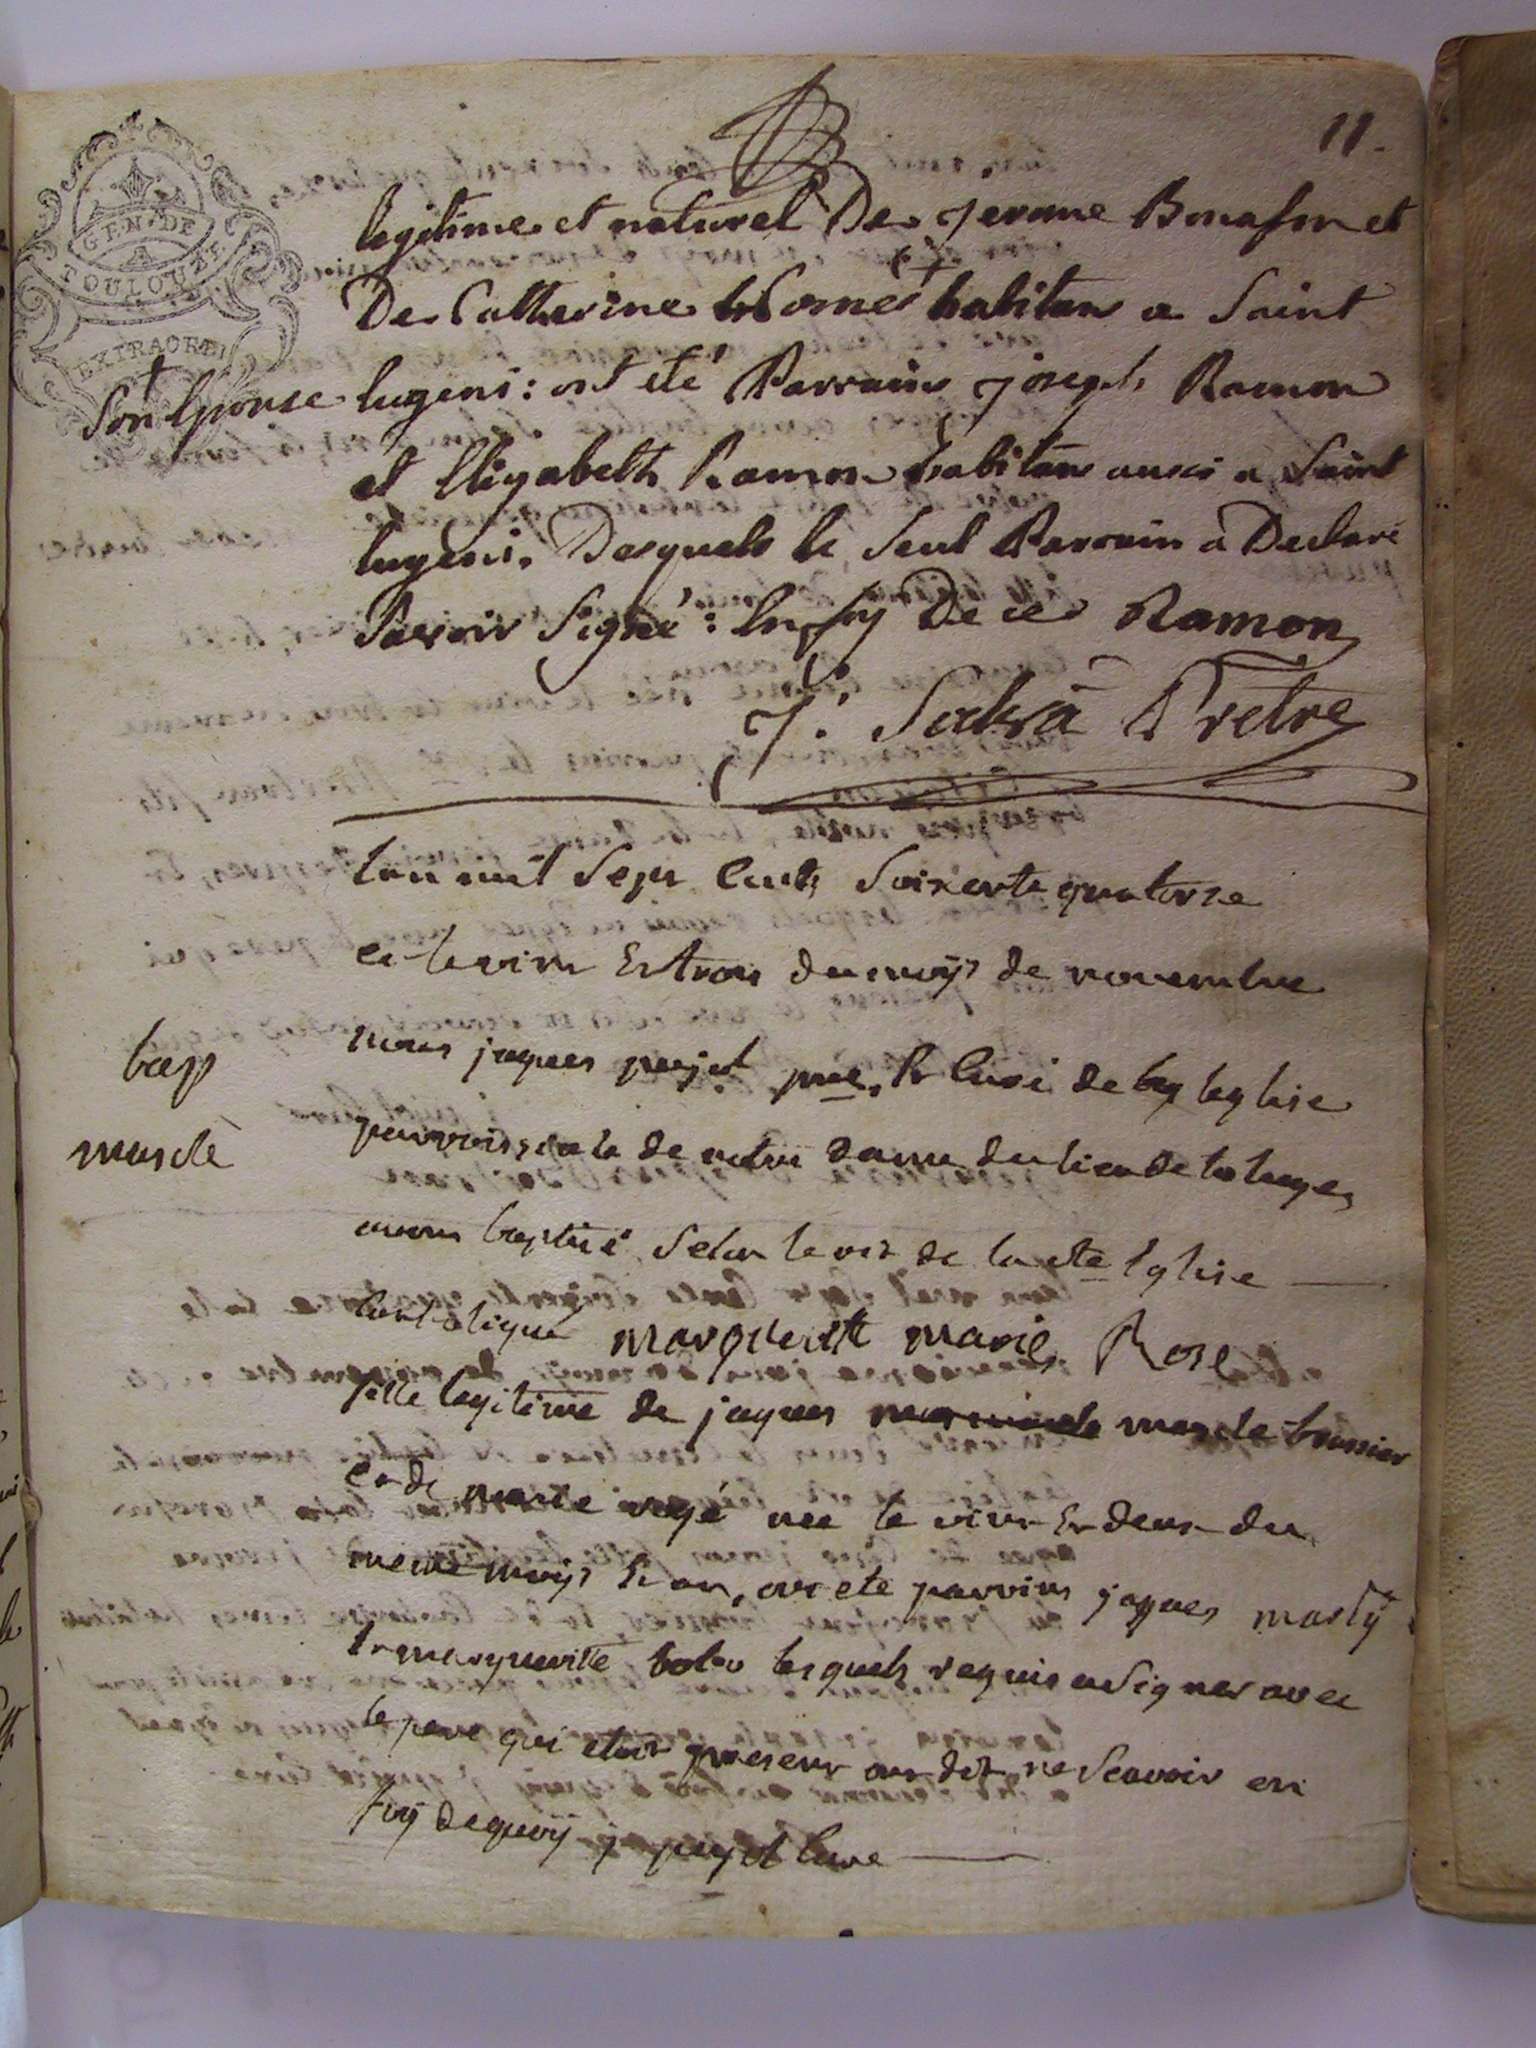 11.
GEN. DE
TOULOUZE
EXTRAORDI
legitime et naturel De Jerome Bonafon et
De Catherine + habitans a Saint
+ Son Epouse
Eugeni : ont eté Parrains joseph Ramon
et Elizabeth Ramon habitans aussi a Saint
Eugeni. Desquels le Seul Parrain a Declaré
Scavoir Signé : En foy De ce Ramon
J. Prêtre
bap
masclè
Lan mil Sept Cents Soixante quatorze
et le vint Et trois du moys de novembre
nous jaques pujol Et Curé de leglise
parroissiale de notre dame du lieu de
avons baptisé Selon le rit de la ste Eglise
Catholique Marguerite marie Rose
fille legitime de jaques mascle brassier
et de marie nee le vint Et deux du
meme moys Et an, ont ete parrins jaques marty
Et marguerite lesquels requis de Signer avec
le pere qui etoit present ont dit ne Scavoir en
foy de quoy j pujol Cure